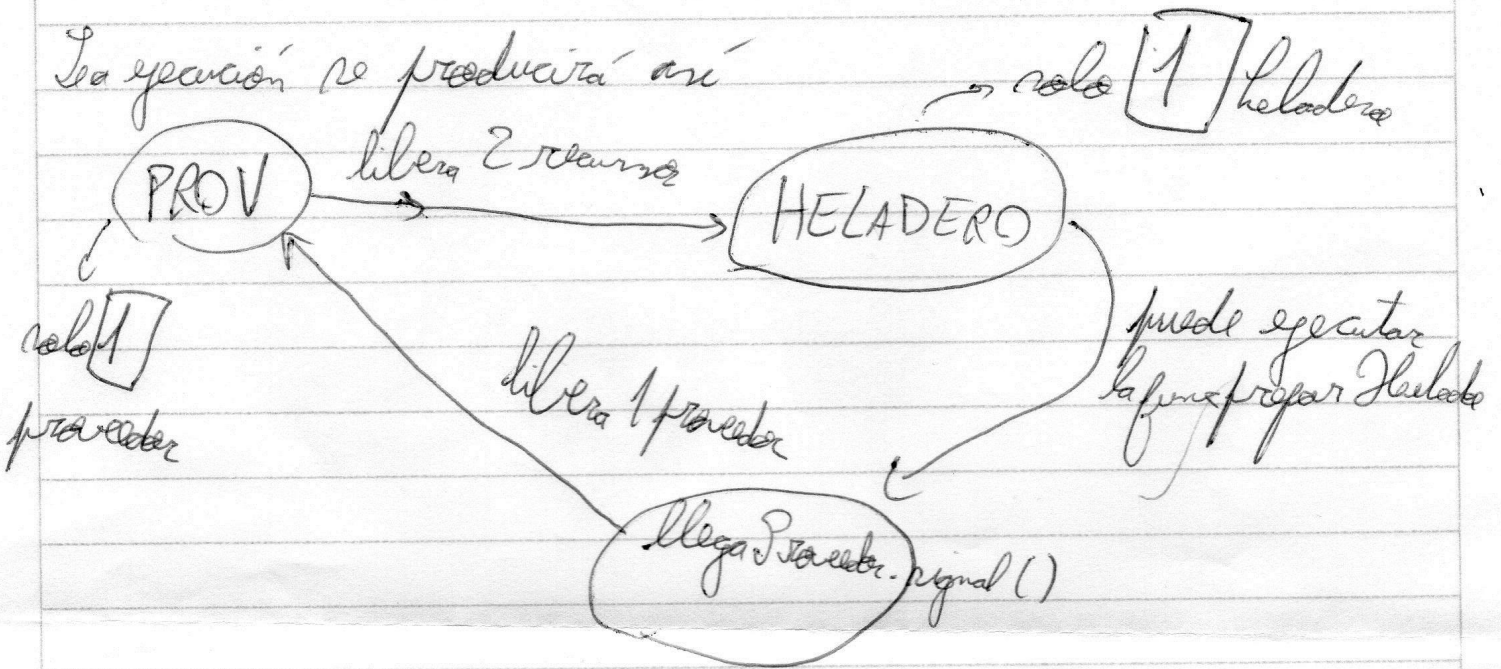 La ejecución se producirá así
solo 1 heladero
PROV
libera 2 recursos
HELADERO
solo 1
proveedor
libera 1 proveedor
puede ejecutar
la func prepar Helado
llegaProveedor.signal()